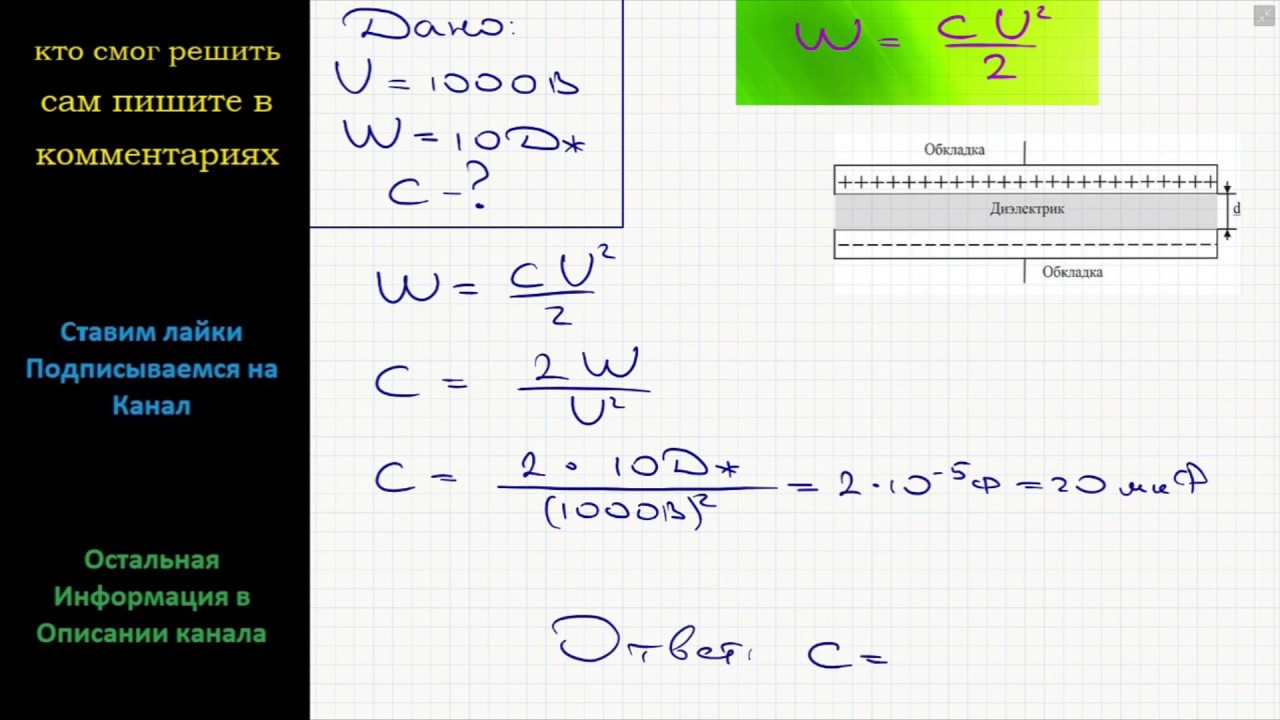 кто смог решить
сам пишите в
комментариях
Ставим лайки
Подписываемся на
Канал
Остальная
Информация в
Описании канала
Дано:
U = 1000В
W = 10Дж
C – ?
W = CU²/2
Обкладка
+++++++++++++++++++++++++
Диэлектрик
d
−−−−−−−−−−−−−−−−−−−−−−−−−
Обкладка
W = CU²/2
C = 2W/U²
C = 2 · 10Дж/(1000В)² = 2·10⁻⁵ф = 20 мкФ
Ответ: C =